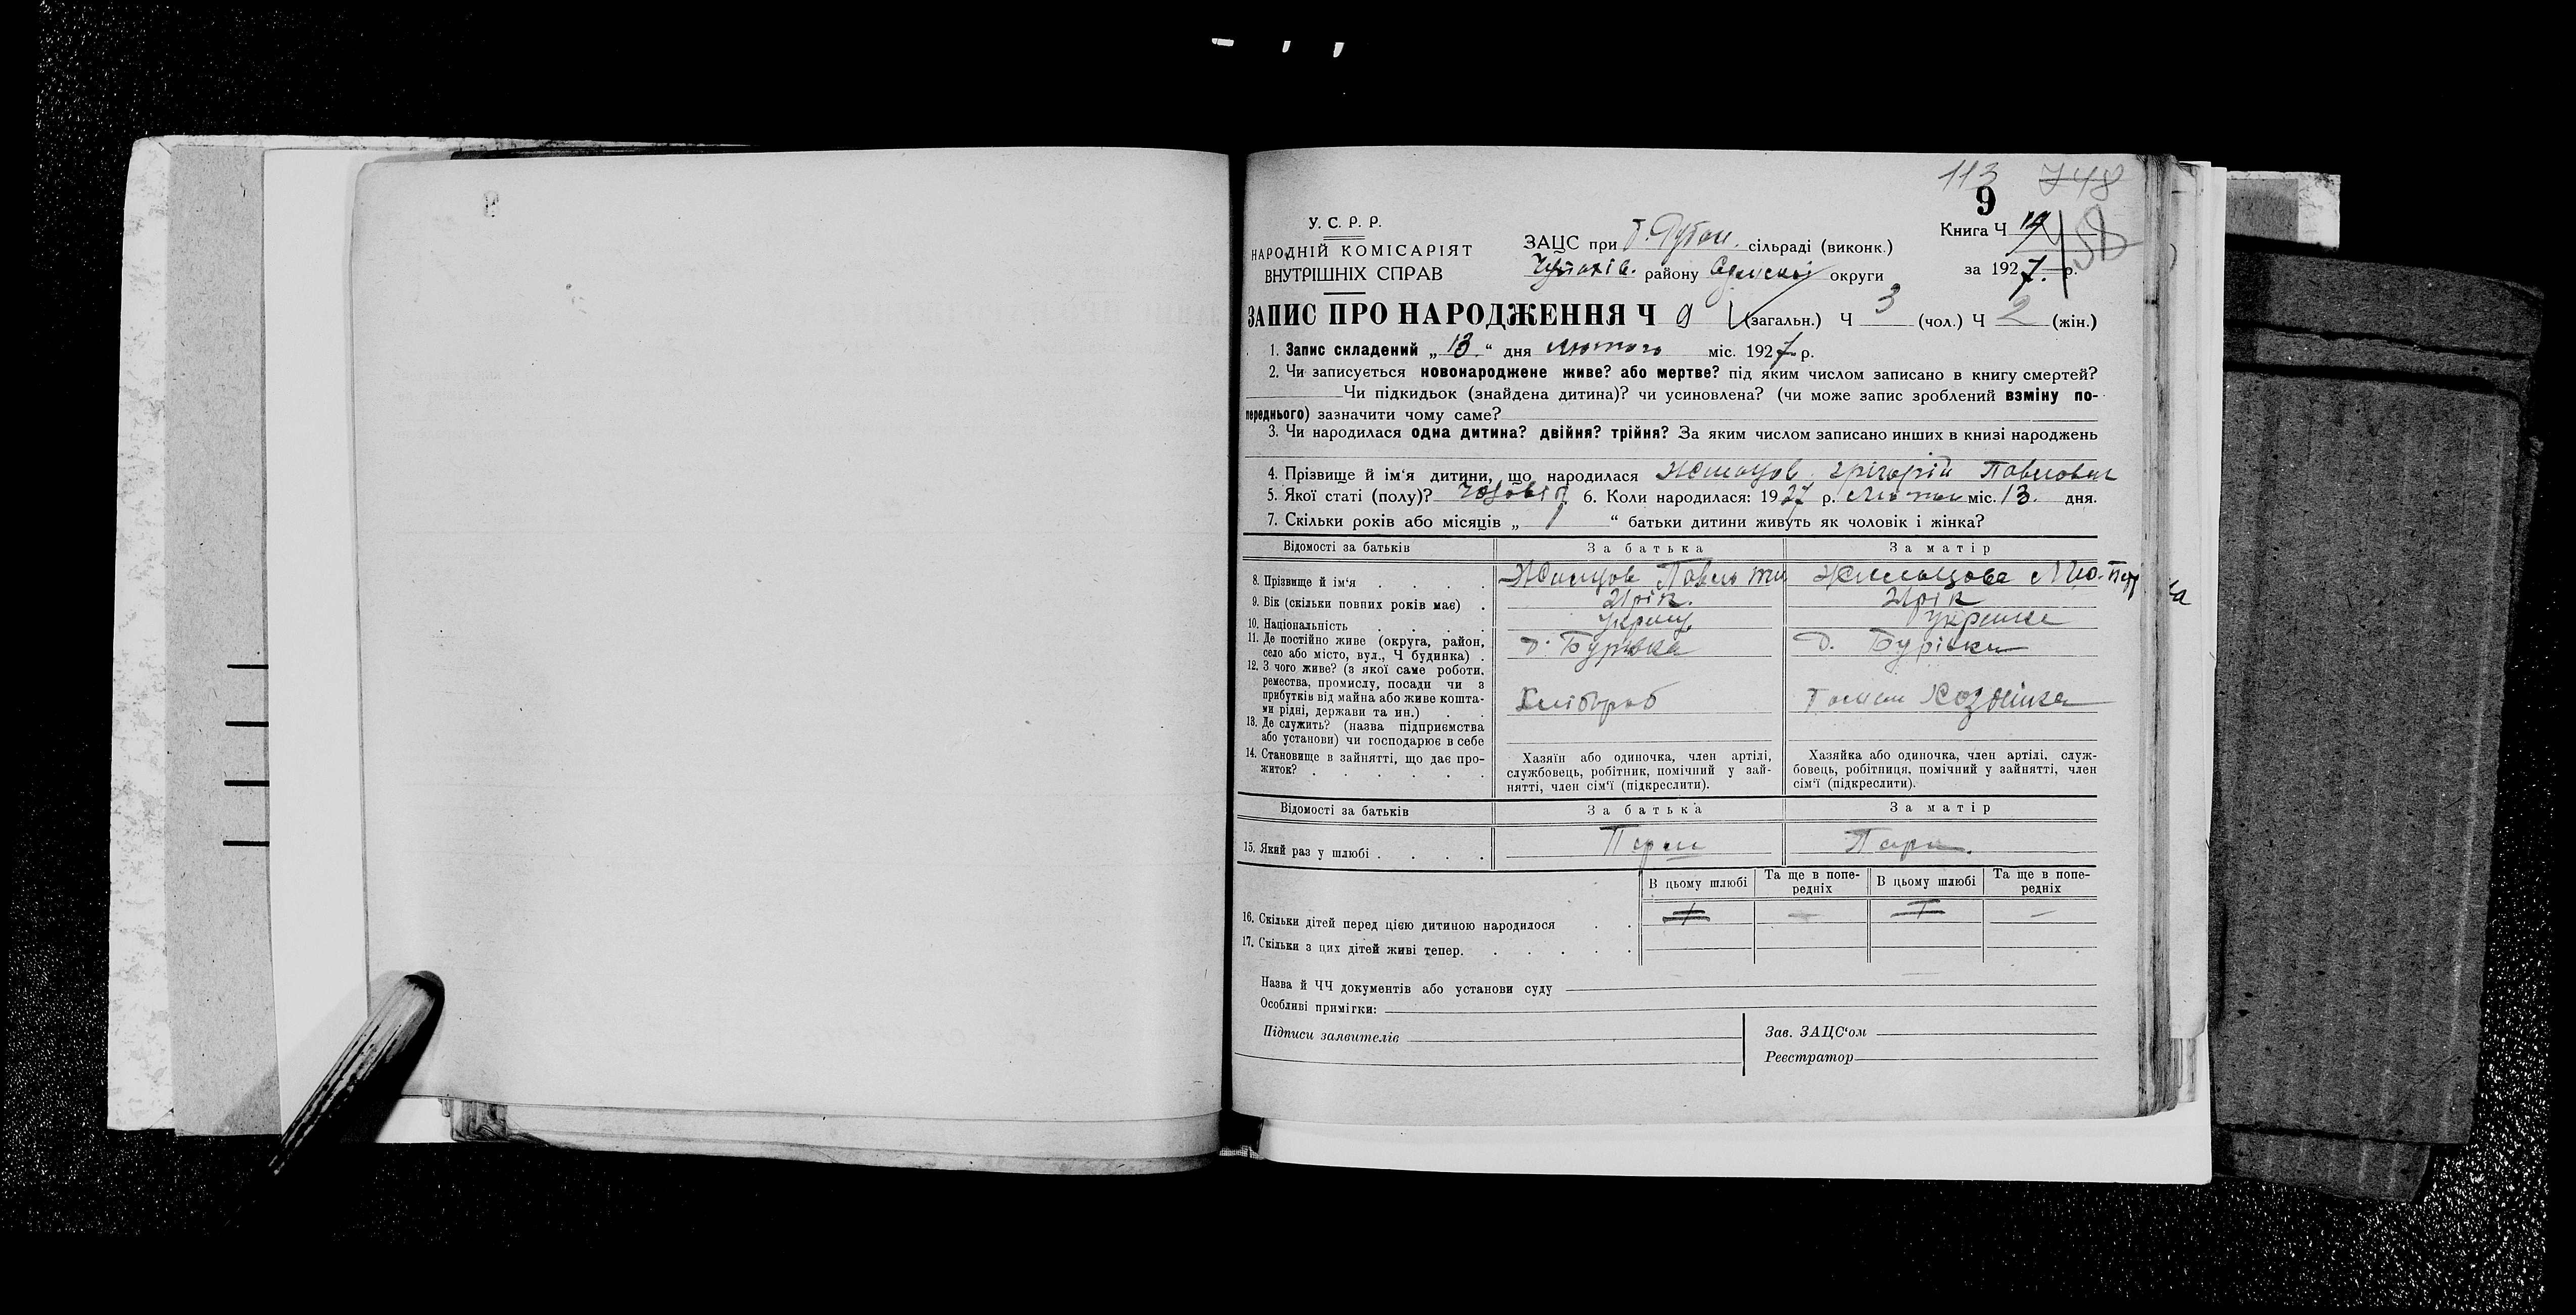 113 748
9
У. С. Р. Р.
НАРОДНІЙ КОМІСАРІЯТ
ВНУТРІШНІХ СПРАВ
ЗАЦС при сільраді (виконк.)
району округи
Книга Ч
за 1927 р.
ЗАПИС ПРО НАРОДЖЕННЯ Ч 9 (загальн.) Ч 3 (чол.) Ч 2 (жін.)
1. Запис складений „13“ дня лютого міс. 1927 р.
2. Чи записується новонароджене живе? або мертве? під яким числом записано в книгу смертей?
Чи підкидьок (знайдена дитина)? чи усиновлена? (чи може запис зроблений взміну по-
переднього) зазначити чому саме?
3. Чи народилася одна дитина? двійня? трійня? За яким числом записано инших в книзі народжень
4. Прізвище й ім'я дитини, що народилася Грігорій Павлович
5. Якої статі (полу)? 6. Коли народилася: 1927 р. міс. 13. дня.
7. Скільки років або місяців „ 1 “ батьки дитини живуть як чоловік і жінка?
Відомості за батьків За батька За матір
8. Прізвище й ім'я
9. Вік (скільки повних років має)
10. Національність Украинка
11. Де постійно живе (округа, район,
село або місто, вул., Ч будинка) Д. Бурівка Д. Бурівка
12. З чого живе? (з якої саме роботи,
ремества, промислу, посади чи з
прибутків від майна або живе кошта-
ми рідні, держави та ин.) Хлібороб
13. Де служить? (назва підприємства
або установи) чи господарює в себе
14. Становище в зайнятті, що дає про-
житок?
Хазяїн або одиночка, член артілі,
службовець, робітник, помічний у зай-
нятті, член сім'ї (підкреслити).
Хазяйка або одиночка, член артілі, служ-
бовець, робітниця, помічний у зайнятті, член
сім'ї (підкреслити).
Відомості за батьків За батька За матір
15. Який раз у шлюбі
В цьому шлюбі Та ще в попе-
редніх В цьому шлюбі Та ще в попе-
редніх
16. Скільки дітей перед цією дитиною народилося
17. Скільки з цих дітей живі тепер.
Назва й ЧЧ документів або установи суду
Особливі примітки:
Підписи заявителів
Зав. ЗАЦС'ом
Реєстратор